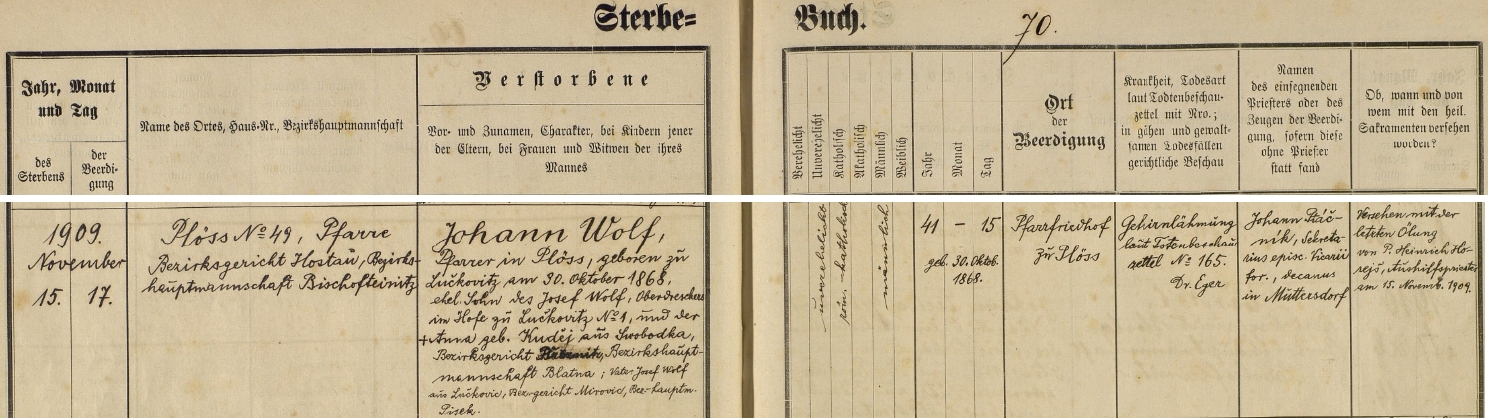 Sterbe=
Buch.
70.
Jahr, Monat
und Tag
des
Sterbens
der
Beerdi-
gung
Name des Ortes, Haus-Nr., Bezirkshauptmannschaft
Verstorbene
Vor- und Zunamen, Charakter, bei Kindern jener
der Eltern, bei Frauen und Witwen der ihres
Mannes
Verehelicht
Unverehelicht
Katholisch
Akatholisch
Männlich
Weiblich
Jahr
Monat
Tag
Ort
der
Beerdigung
Krankheit, Todesart
laut Todtenbeschau-
zettel mit Nro.;
in gähen und gewalt-
samen Todesfällen
gerichtliche Beschau
Namen
des einsegnenden
Priesters oder des
Zeugen der Beerdi-
gung, sofern diese
ohne Priester
statt fand
Ob, wann und von
wem mit den heil.
Sakramenten versehen
worden?
1909.
November
15. 17.
Plöss No 49, Pfarre
Bezirksgericht Hostau, Bezirks-
hauptmannschaft Bischofteinitz
Johann Wolf,
Pfarrer in Plöss, geboren zu
Lučkovitz am 30. Oktober 1868,
ehel. Sohn des Josef Wolf, Oberdreschers
im Hofe zu Lučkovitz No 1, und der
+Anna geb. Kuděj aus Swobodka,
Bezirksgericht Bezirkshaupt-
mannschaft Blatna; Vater Josef Wolf
aus Lučkovic, Bez-gericht Mirovic, Bez-hauptm.
Pisek.
unverehelicht
röm.-katholisch
männlich
41 – 15
geb. 30. Oktob.
1868.
Pfarrfriedhof
zu Plöss
Gehirnlähmung
laut Totenbeschau
zettel No 165.
Dr. Eger
Johann Ptáč-
ník, Sekreta-
rius episc. Vicarii
for., decanus
in Muttersdorf
Versehen mit der
letzten Ölung
von P. Heinrich Ho-
rejš, Aushilfspriester
am 15. Novemb. 1909.